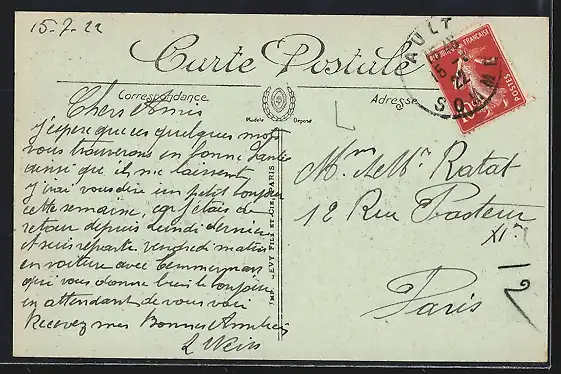 15-7-22
Carte Postale
Correspondance
Adresse
Modèle Déposé
AULT
15 -7 22
SOMME
RÉPUBLIQUE FRANÇAISE
POSTES
10
Chers Amis
j'espère que ces quelques mots
vous trouverons en bonne santé
ainsi que il nous laissent
j'irai vous dire un petit bonjour
cette semaine, car j'étais de
retour depuis lundi dernier
et suis repartie vendredi matin
en voiture avec
qui vous donne bien le bonjour
en attendant de vous voir
Recevez mes Bonnes Amitiés
L Weis
IMP. LEVY FILS ET CIE, PARIS
Mme et Mr Ratat
12 Rue Pasteur
XIe
Paris